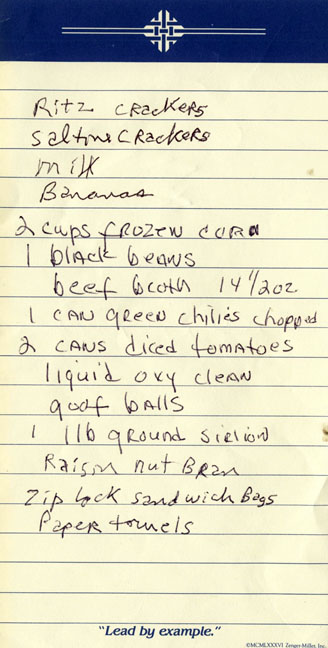 Ritz crackers
saltine crackers
milk
Bananas
2 cups frozen corn
1 black beans
beef broth 14 1/2 oz
1 can green chilies chopped
2 cans diced tomatoes
liquid oxy clean
goof balls
1 1lb ground sirlion
Raisin nut Bran
Zip lock sandwich Bags
Paper towels
"Lead by example."
©MCMLXXXVI Zenger-Miller, Inc.